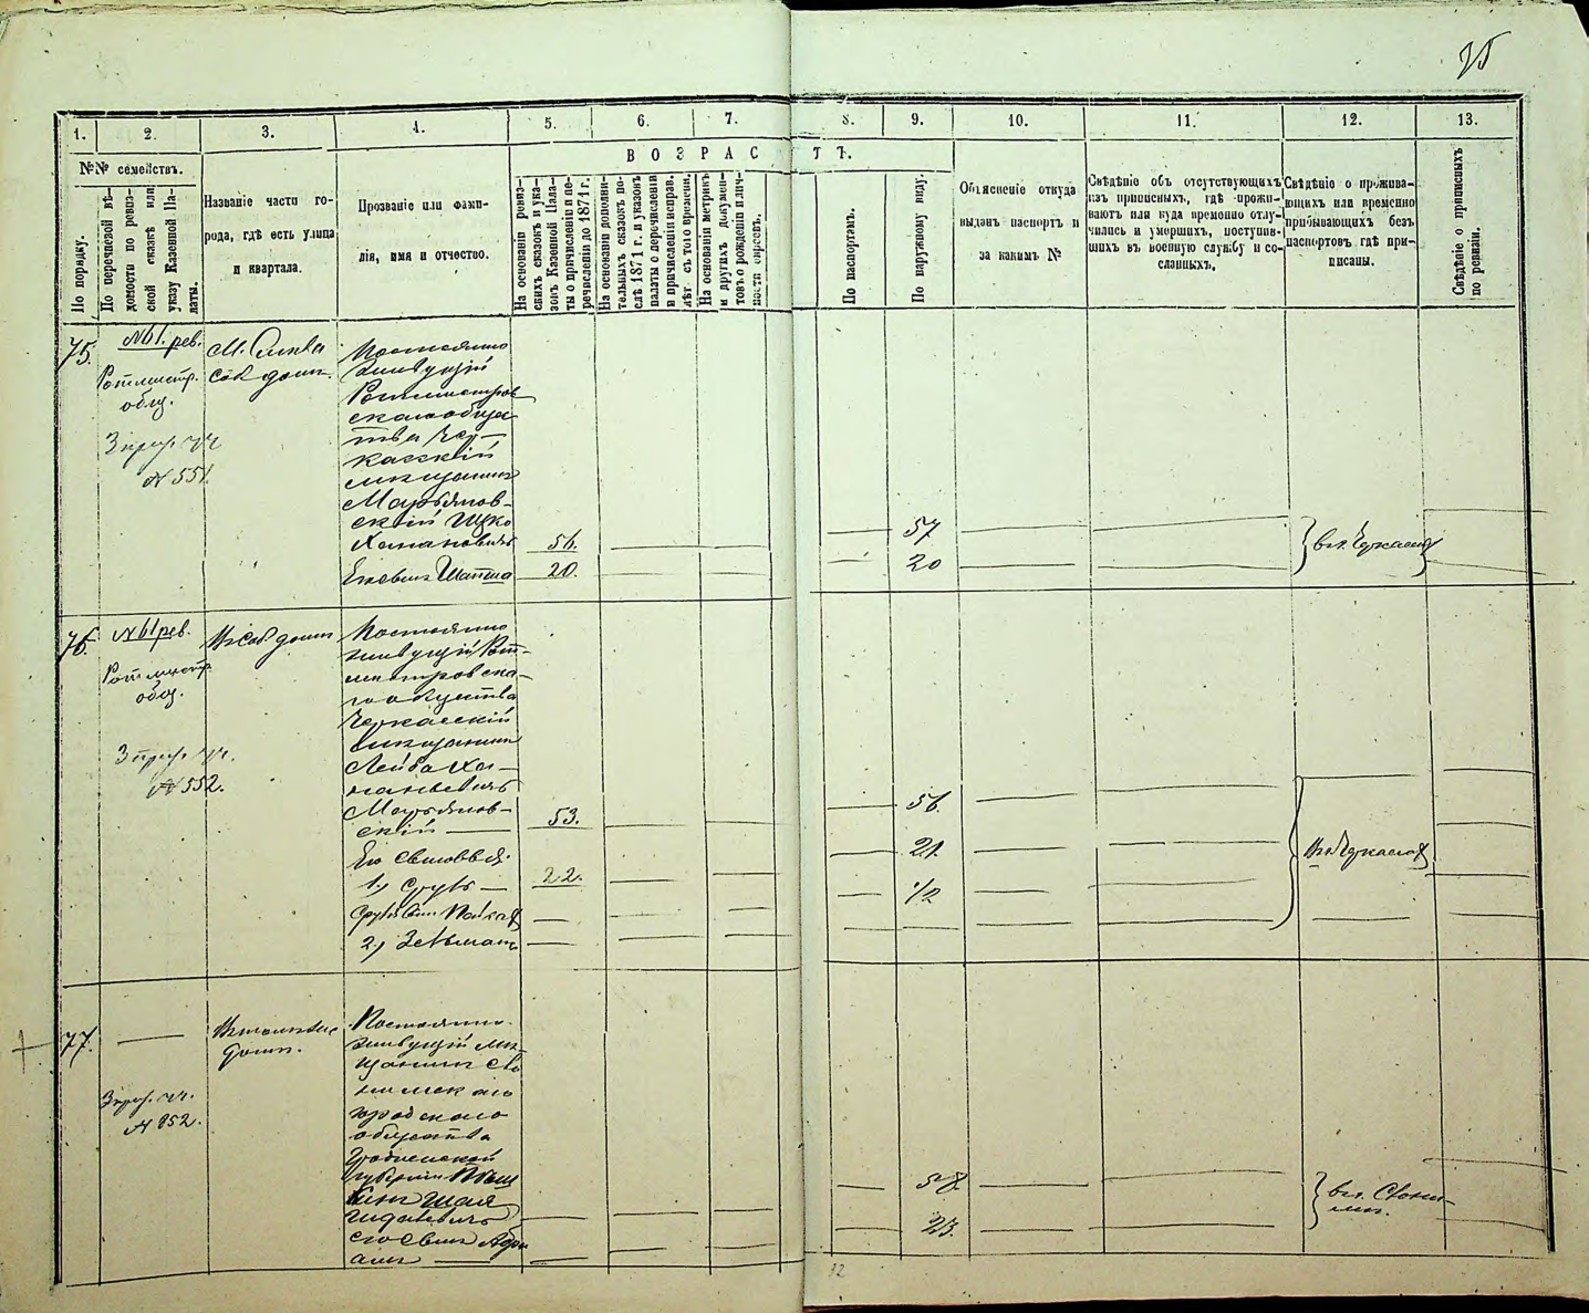 1.
2.
3.
4.
5.
6.
7.
8.
9.
10.
11.
12.
13.
№№ семействъ.
ВОЗРАСТЪ.
По порядку.
По перечневой вѣ-
домости по ревиз-
ской сказкѣ или
указу Казенной Па-
латы.
Названіе части го-
рода, гдѣ есть улица
и квартала.
Прозваніе или фами-
лія, имя и отчество.
На основаніи ревиз-
скихъ сказокъ и ука-
зовъ Казенной Пала-
ты о причисленіи и пе-
речисленіи до 1871 г.
На основаніи дополни-
тельныхъ сказокъ по-
слѣ 1871 г. и указовъ
палаты о перечисленіи
и причисленіи исправ.
лѣт съ того времени.
На основаніи метрикъ
и другихъ докумен-
товъ о рожденіи и лич-
По паспортамъ.
По наружному виду.
Объясненіе откуда
выданъ паспортъ и
за какимъ №
Свѣдѣніе объ отсутствующихъ
изъ приписныхъ, гдѣ прожи-
ваютъ или куда временно отлу-
чились и умершихъ, поступив-
шихъ въ военную службу и со-
сланныхъ.
Свѣдѣніе о прожива-
ющихъ или временно
прибывающихъ безъ
паспортовъ гдѣ при-
писаны.
Свѣдѣніе о приписныхъ
по ревизіи.
75.
№61. рев.
Ротмистр.
общ.
№ 551.
М. Смѣла
соб. домъ.
Постоянно
живущій
Ротмистров
скаго общес
тва Чер-
касскій
мѣщанинъ
Марьянов-
скій Ицко
Хаимановичъ
56.
57
Его сынъ Шапша
20.
20
въ г. Черкассахъ
76.
№61 рев.
Ротмистр.
общ.
№ 552.
Въ соб. домѣ
Постоянно
живущій Рот-
мистровска-
го общества
Черкасскій
мѣщанинъ
Лейба Хаи-
мановичъ
Марьянов-
скій
53.
56.
Его сыновья:
1.) Сруль
22.
21.
Срулевъ сынъ
1/2
2.) Зельманъ
въ г. Черкассахъ
77.
№ 852.
домѣ.
Постоянно
живущій мѣ-
щанинъ Сло
нимскаго
городскаго
общества
Гродненской
губерніи
Шая
58.
его сынъ Абра
амъ
23.
въ г. Слони-
мѣ.